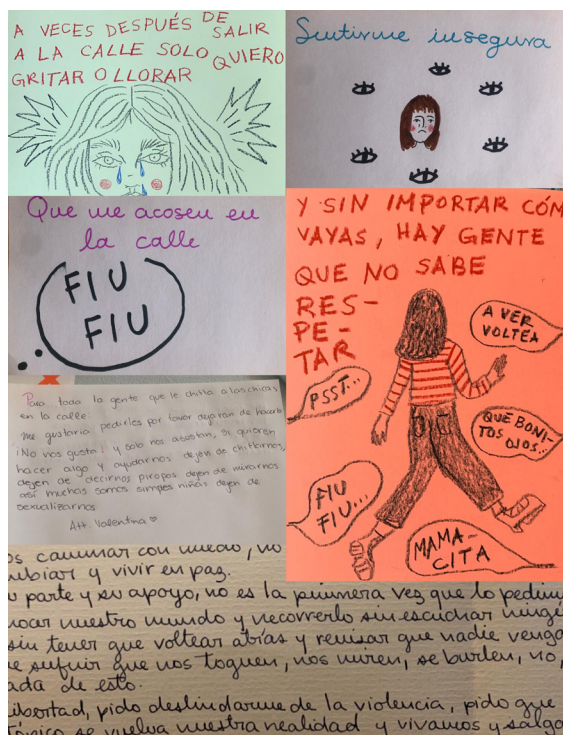 A VECES DESPUÉS DE SALIR
A LA CALLE SOLO QUIERO
GRITAR O LLORAR
Sentirme insegura
Que me acosen en
la calle
FIU
FIU
Y SIN IMPORTAR CÓM
VAYAS, HAY GENTE
QUE NO SABE
RES-
PE-
TAR
A VER
VOLTEA
PSST...
QUE BONI-
TOS OJOS...
FIU
FIU...
MAMA-
CITA
Para toda la gente que le chifla a las chicas
en la calle:
me gustaria pedirles por favor dejaran de hacerlo
¡No nos gusta! y solo nos asustan, si quieren
hacer algo y ayudarnos dejen de chiflarnos,
dejen de decirnos piropos dejen de mirarnos
así muchas somos simples niñas dejen de
sexualizarnos
Att. Valentina
os caminar con miedo, no
mbiar y vivir en paz.
parte y su apoyo, no es la primera vez que lo pedim
nocer nuestro mundo y recorrerlo sin escuchar ningú
sin tener que voltear atrás y revisar que nadie venga
e sufrir que nos toquen, nos miren, se burlen, no,
ada de esto.
libertad, pido deslindarme de la violencia, pido que
tópico se vuelva nuestra realidad y vivamos y salga